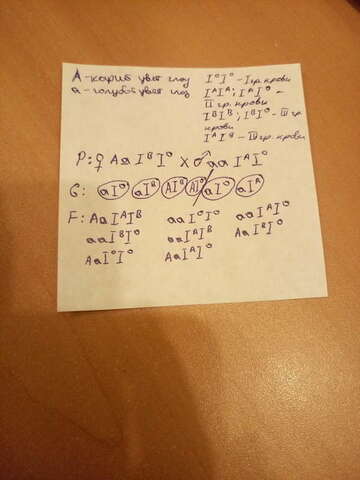 А - карий цвет глаз
а - голубой цвет глаз
I⁰I⁰ - I гр. крови
IᴬIᴬ; IᴬI⁰ -
II гр. крови
IᴮIᴮ; IᴮI⁰ - III гр.
крови
IᴬIᴮ - IV гр. крови
P: ♀ Aa IᴮI⁰ X ♂ aa IᴬI⁰
G: aI⁰ aIᴮ AIᴮ AI⁰ aI⁰ aIᴬ
F: Aa IᴬIᴮ aa I⁰I⁰ aa IᴬI⁰
aa IᴮI⁰ aa IᴬIᴮ Aa IᴮI⁰
Aa I⁰I⁰ Aa IᴬI⁰